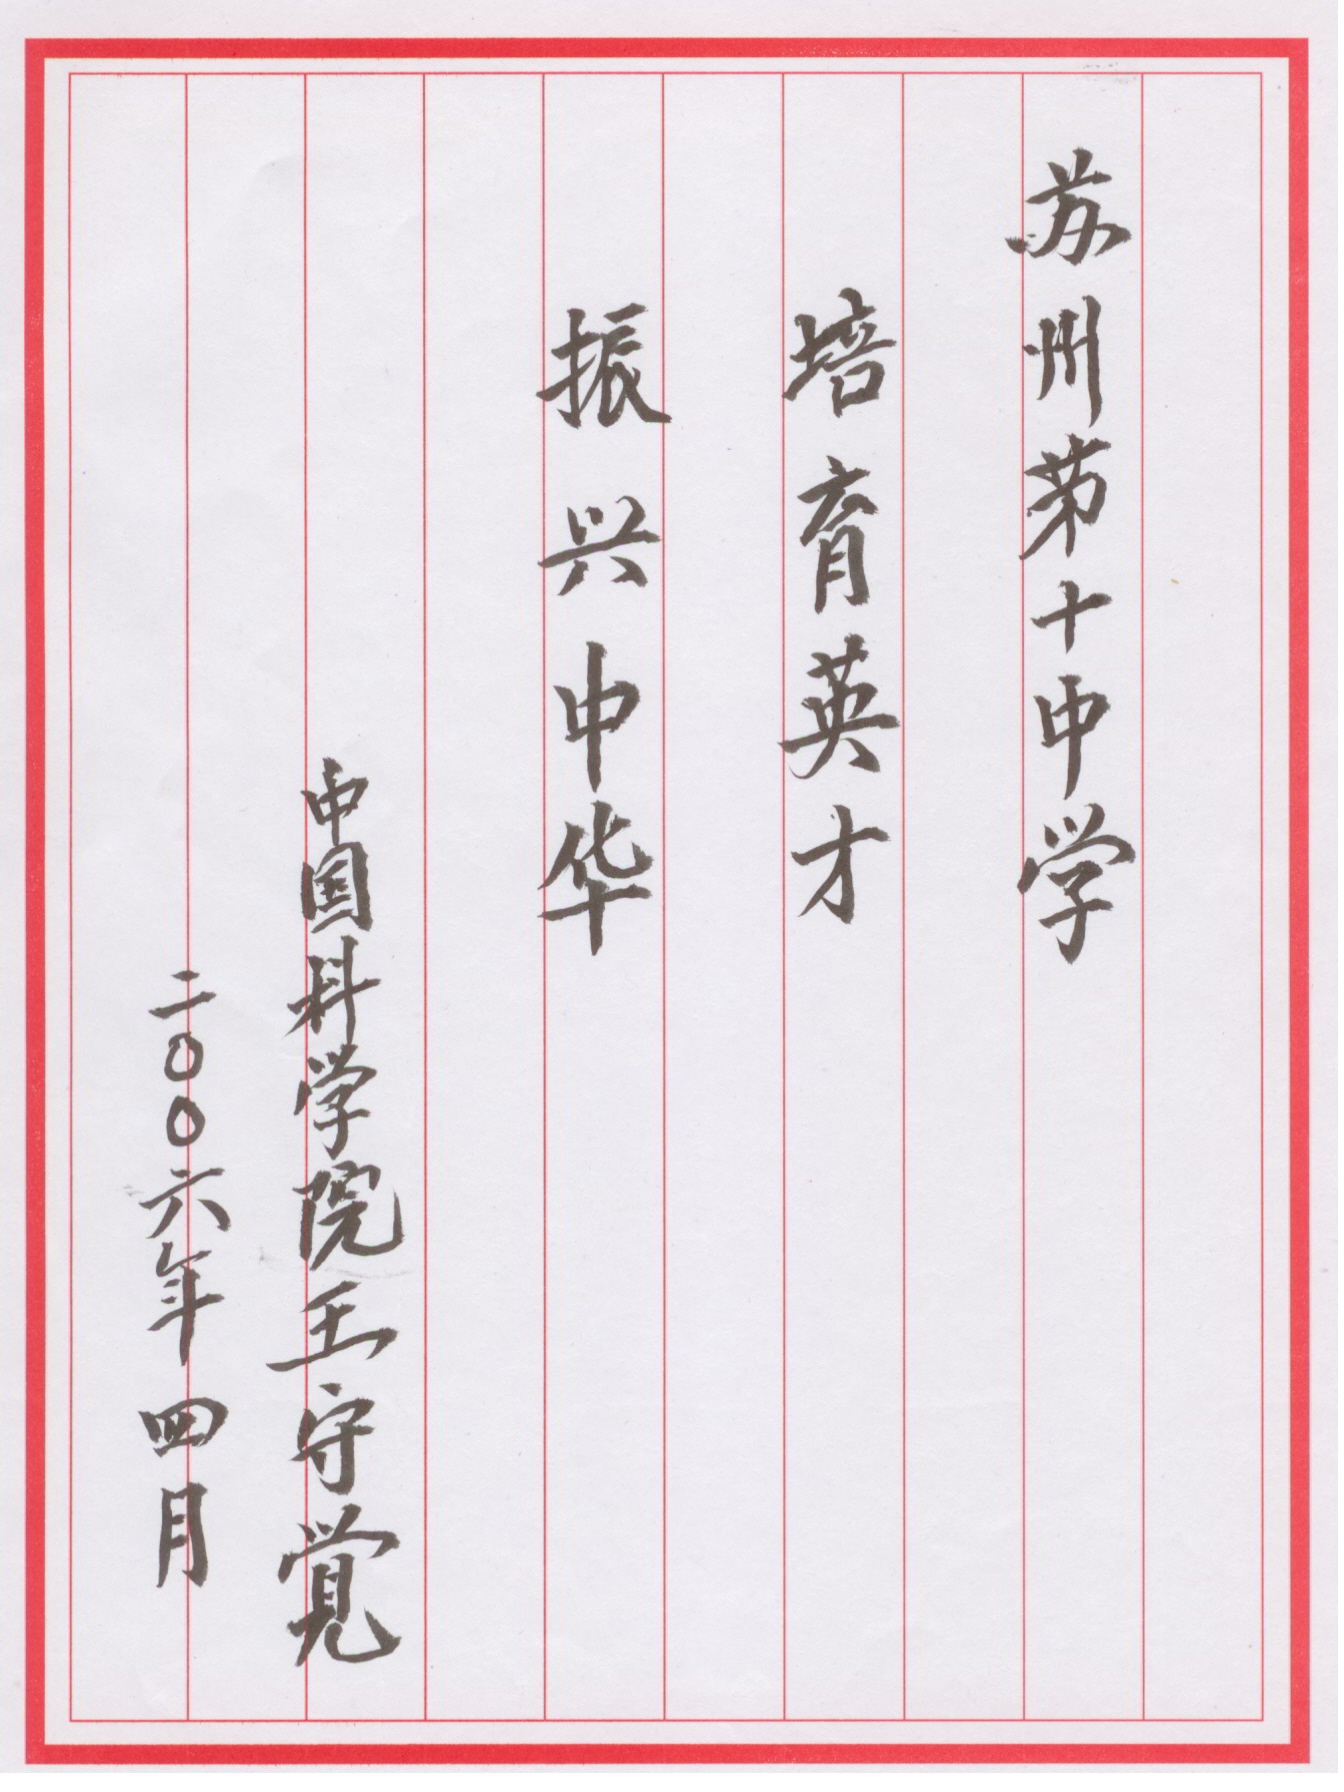 苏州第十中学
培育英才
振兴中华
中国科学院王守觉
二〇〇六年四月